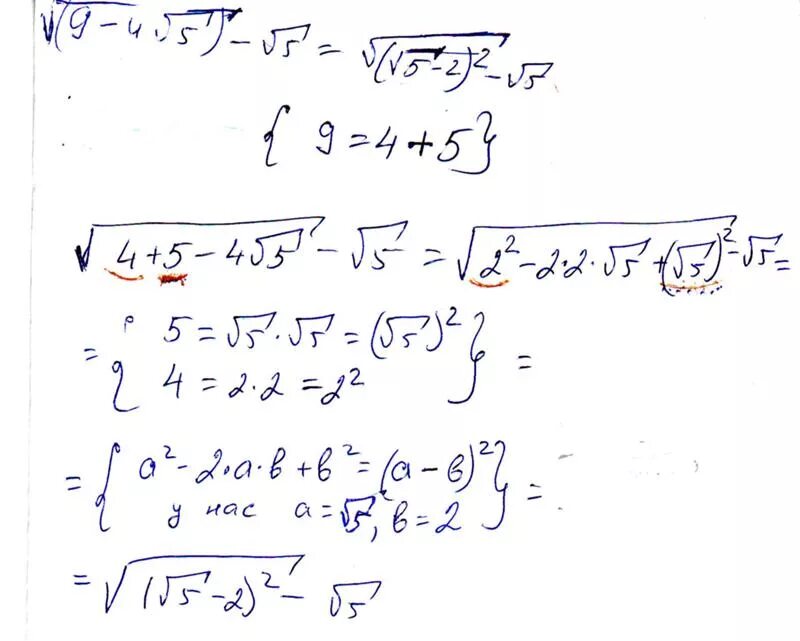 √(9 − 4√5) − √5 = √(√5 − 2)² − √5
{ 9 = 4 + 5 }
√4 + 5 − 4√5 − √5 = √2² − 2·2·√5 + (√5)² − √5 =
= { 5 = √5 · √5 = (√5)²
4 = 2·2 = 2² } =
= { a² − 2·a·в + в² = (a − в)²
у нас a = √5, в = 2 } =
= √(√5 − 2)² − √5